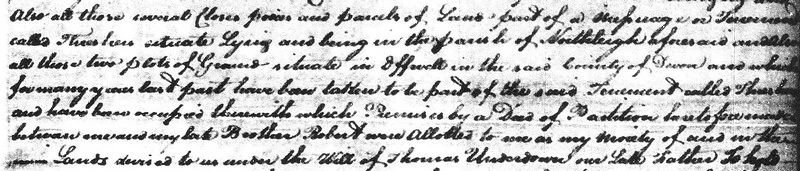 Also all those several Closes pieces and parcels of Land part of a Messuage or Tenement
called Thushers situate Lying and being in the parish of Northleigh aforesaid and Also
all those two plots of Ground situate in Offwell in the said County of Devon and which
for many years last past have been taken to be part of the said Tenement called
and have been occupied therewith which Premises by a Deed of Partition heretofore made
between me and my late Brother Robert were Allotted to me as my Moiety of and in the
Lands devised to us under the Will of Thomas Underdown our Late Father To hold